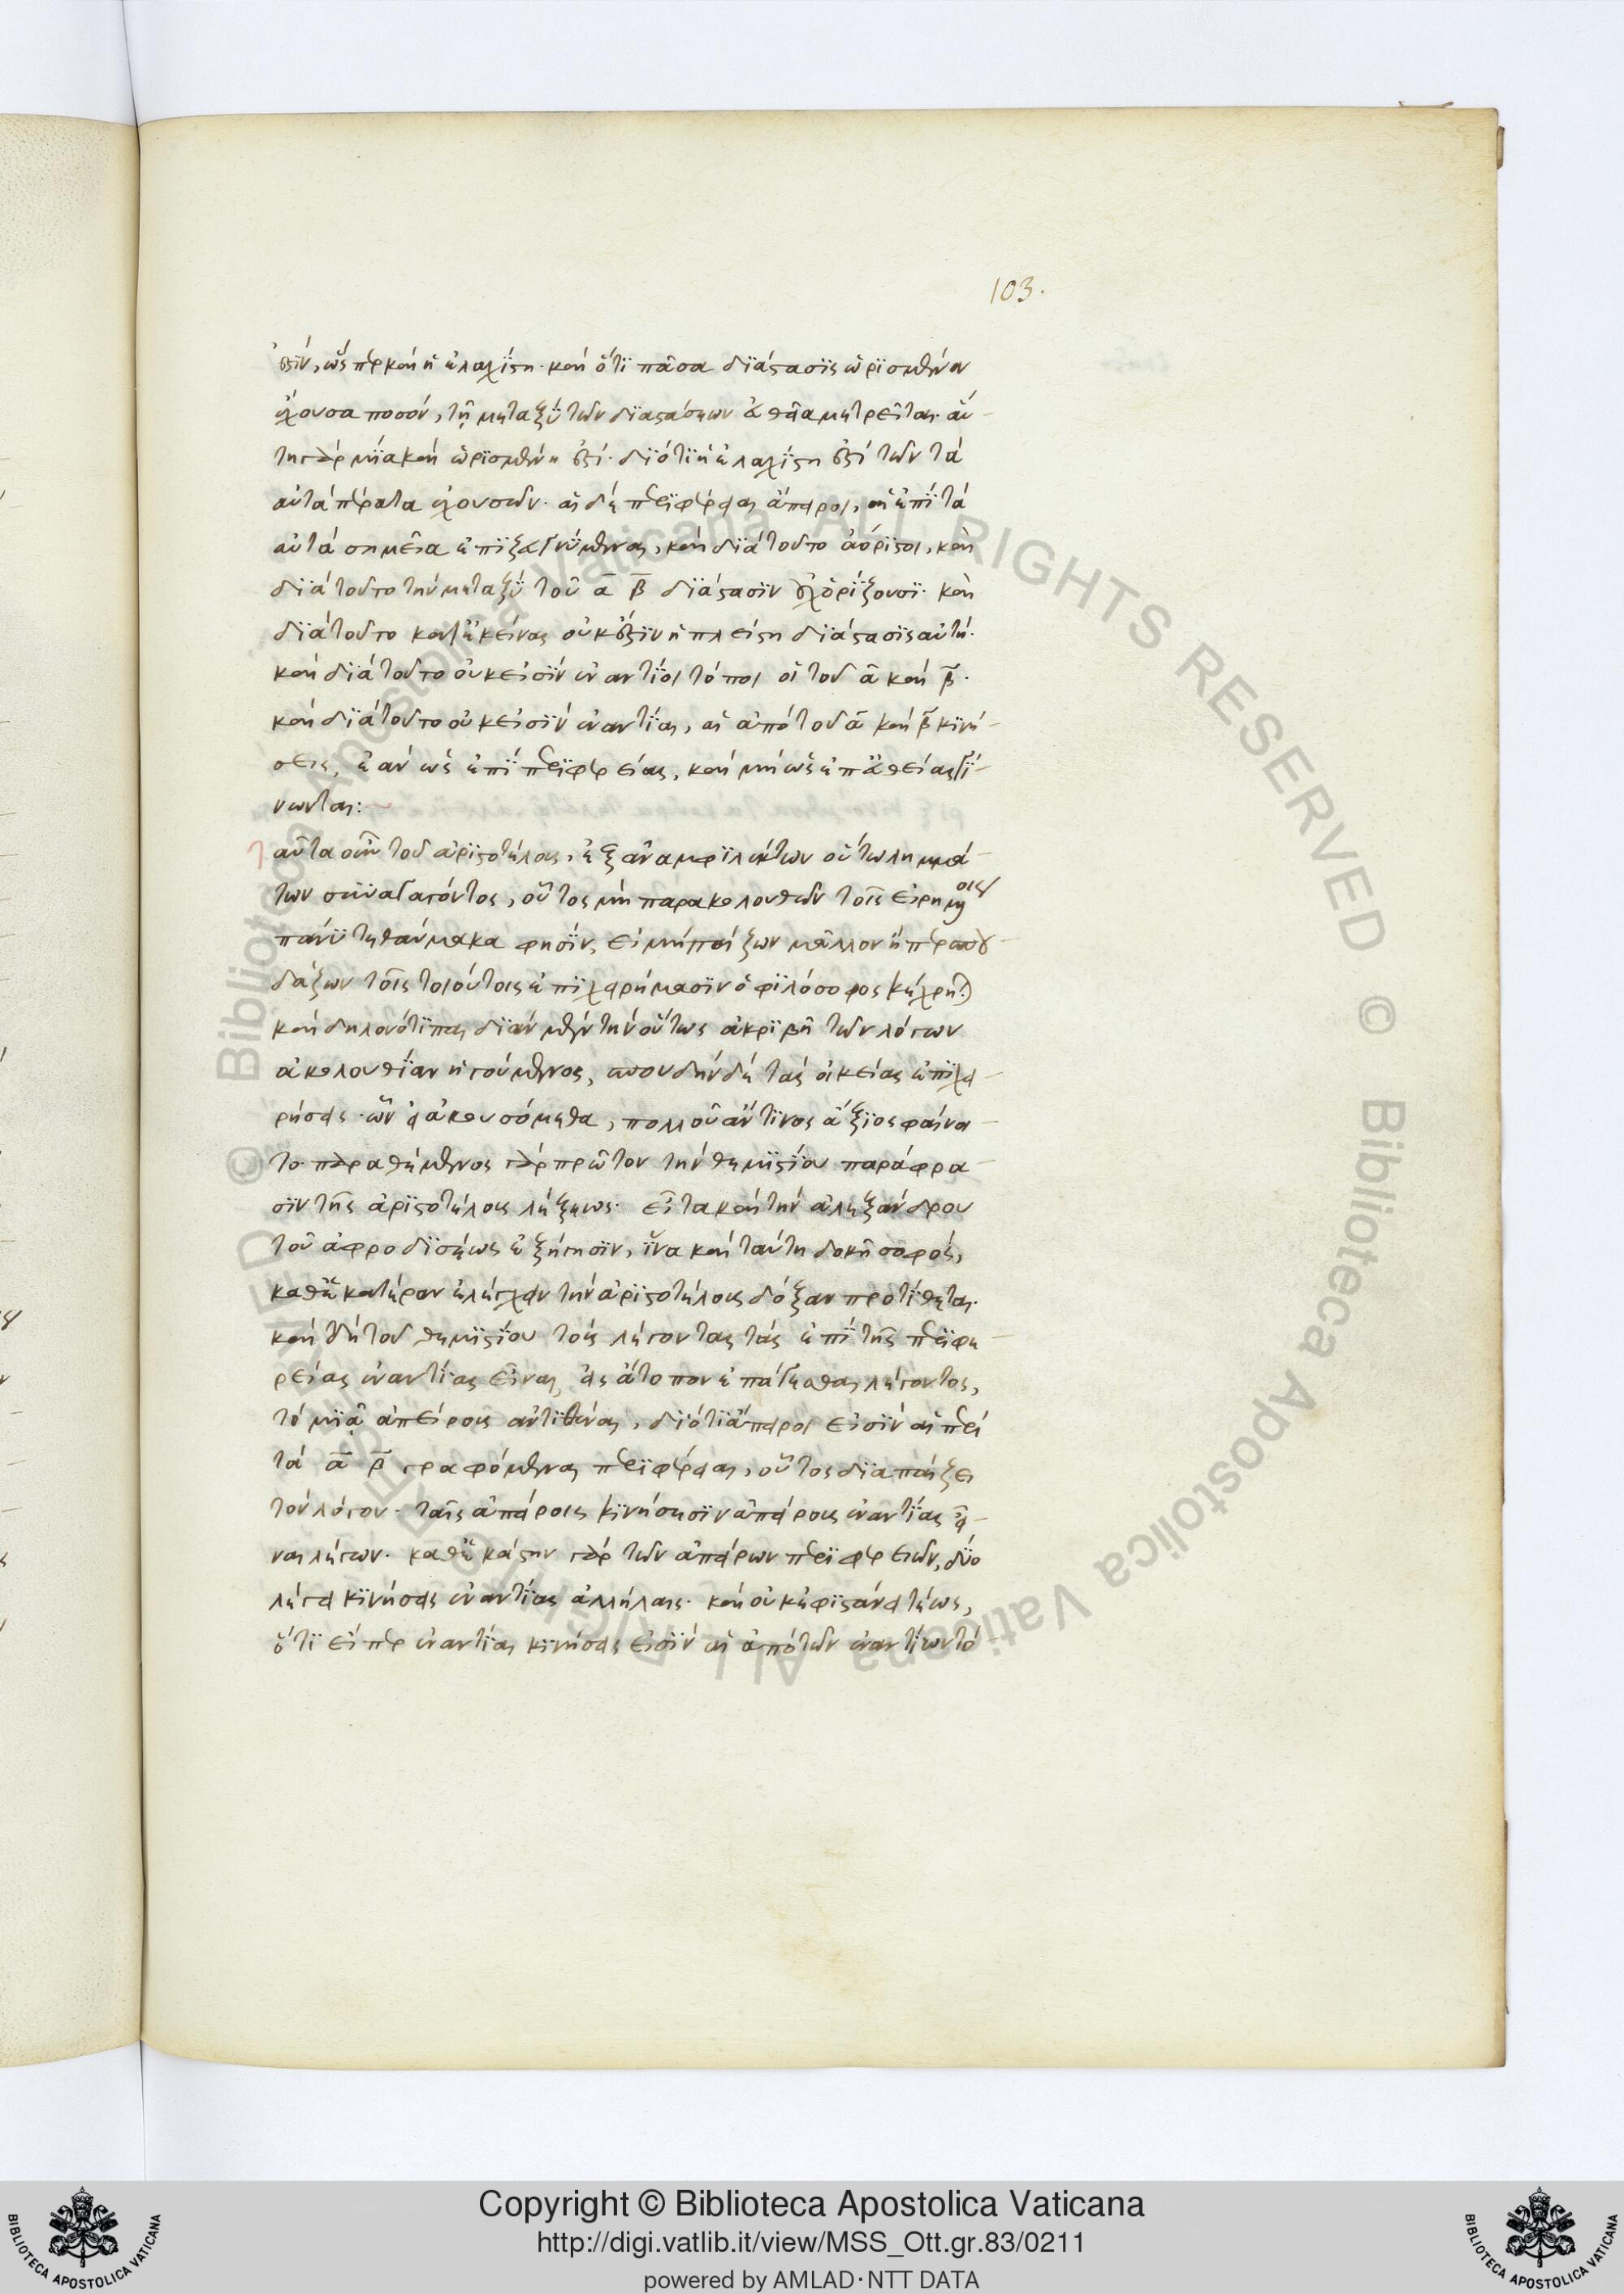 103.
ἐστίν, ὥσπερ καὶ ἡ ἐλαχίστη. καὶ ὅτι πᾶσα διάστασις ὡρισμένον
ἔχουσα ποσόν, τῇ μεταξὺ τῶν διαστάσεων εὐθείᾳ μετρεῖται. αὕ-
τη γὰρ μία καὶ ὡρισμένη ἐστί. διότι ἡ ἐλαχίστη ἐστὶ τῶν τὰ
αὐτὰ πέρατα ἐχουσῶν. αἱ δὲ περιφέρειαι ἄπειροι, αἱ ἐπὶ τὰ
αὐτὰ σημεῖα ἐπιζευγνύμεναι, καὶ διὰ τοῦτο ἀόριστοι, καὶ
διὰ τοῦτο τὴν μεταξὺ τοῦ α β διάστασιν οὐχ ὁρίζουσι. καὶ
διὰ τοῦτο κατ' ἐκείνας οὐκ ἔστιν ἡ πλείστη διάστασις αὐτή.
καὶ διὰ τοῦτο οὐκ εἰσὶν ἐναντίοι τόποι οἱ τοῦ α καὶ β.
καὶ διὰ τοῦτο οὐκ εἰσὶν ἐναντίαι, αἱ ἀπὸ τοῦ α καὶ β κινή-
σεις, ἐὰν ὡς ἐπὶ περιφερείας, καὶ μὴ ὡς ἐπ' εὐθείας γί-
νωνται:
αῦτα οὖν τοῦ ἀριστοτέλους, ἐξ ἀναμφιλέκτων οὕτω λημμά-
των συναγαγόντος, οὗτος μὴ παρακολουθῶν τοῖς εἰρημένοις
πάνυ τεθαύμακα φησίν, εἰ μὴ παίζων μᾶλλον ἤπερ σπου-
δάζων τοῖς τοιούτοις ἐπιχειρήμασιν ὁ φιλόσοφος κέχρηται
καὶ δηλονότι παιδιὰν μὲν τὴν οὕτως ἀκριβῆ τῶν λόγων
ἀκολουθίαν ἡγούμενος, σπουδὴν δὲ τὰς οἰκείας ἐπιχει-
ρήσεις. ὧν εἰ ἀκουσόμεθα, πολλοῦ ἄν τινος ἄξιος φαίνοι-
το. παραθέμενος γὰρ πρῶτον τὴν θεμιστίου παράφρα-
σιν τῆς ἀριστοτέλους λέξεως. εἶτα καὶ τὴν ἀλεξάνδρου
τοῦ ἀφροδισέως ἐξήγησιν, ἵνα καὶ ταύτῃ δοκῇ σοφός,
καθ' ἑκάτερον ἐλέγχειν τὴν ἀριστοτέλους δόξαν προτίθεται.
καὶ ἐπὶ τοῦ θεμιστίου τοὺς λέγοντας τὰς ἐπὶ τῆς περιφε-
ρείας ἐναντίας εἶναι, εἰς ἄτοπον ἐπάγεσθαι λέγοντος,
τὸ μιᾷ ἀπείρους ἀντιθεῖναι, διότι ἄπειροι εἰσὶν αἱ περὶ
τὰ α β γραφόμεναι περιφέρειαι, οὗτος διαπαίζει
τὸν λόγον. ταῖς ἀπείροις κινήσεσιν ἀπείρους ἐναντίας εἶ-
ναι λέγων. καθ' ἑκάστην γὰρ τῶν ἀπείρων περιφερειῶν, δύο
λέγει κινήσεις ἐναντίας ἀλλήλαις. καὶ οὐκ ἐφιστάνει τέως,
ὅτι εἴπερ ἐναντίαι κινήσεις εἰσὶν αἱ ἀπὸ τῶν ἐναντίων τό-
Copyright © Biblioteca Apostolica Vaticana
http://digi.vatlib.it/view/MSS_Ott.gr.83/0211
powered by AMLAD·NTT DATA